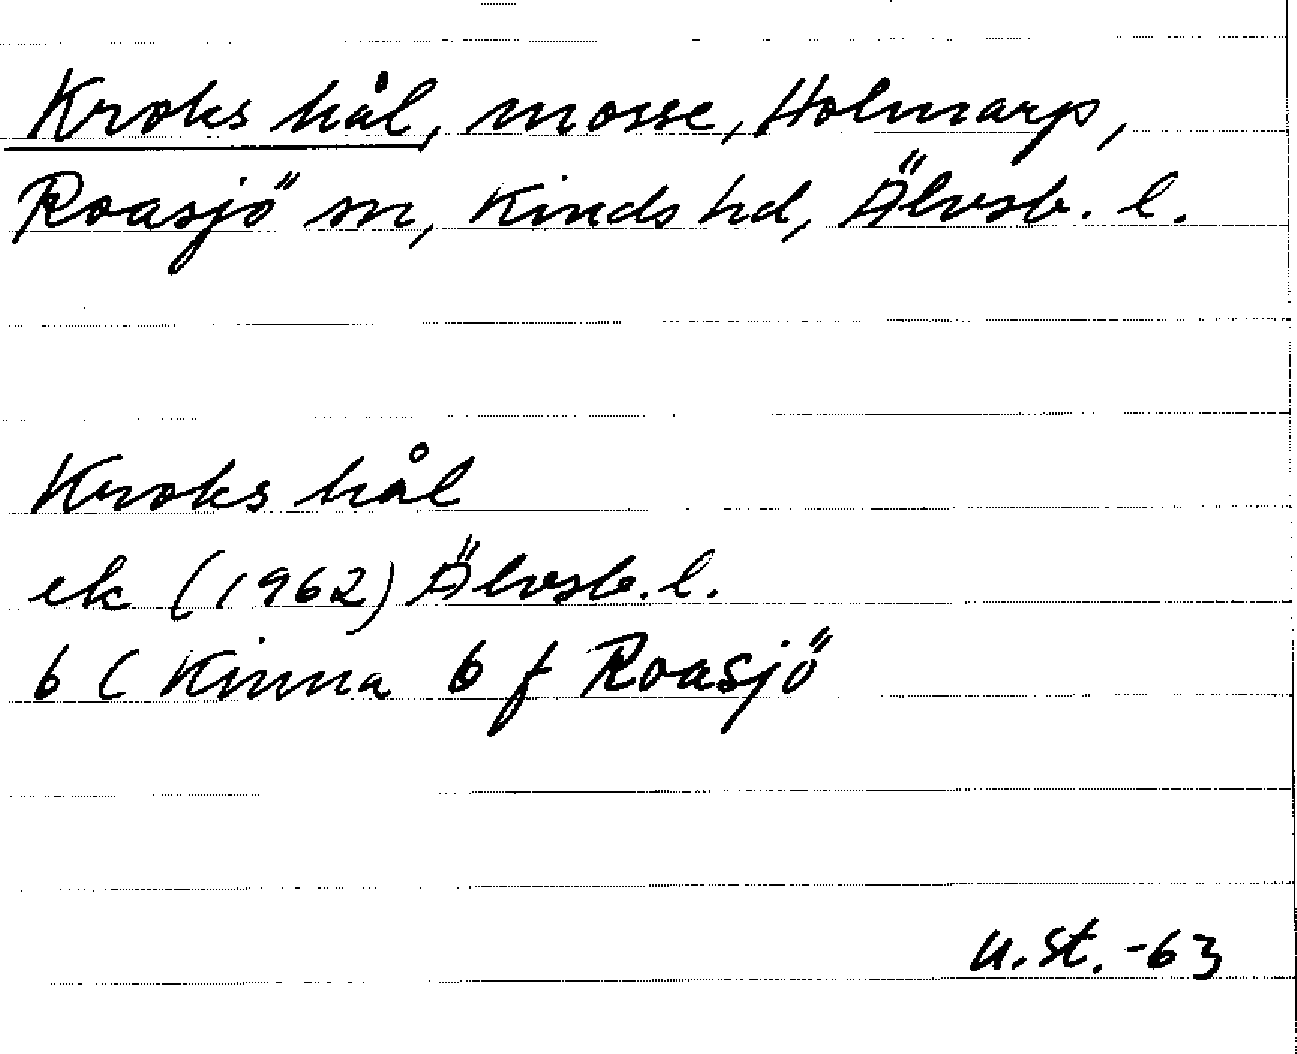 Kroks hål, mosse, Holmarp,
Roasjö sn, Kinds hd, Älvsb. l.
Kroks hål
ek (1962) Älvsb. l.
6 C Kinna 6 f Roasjö
u.st.-63